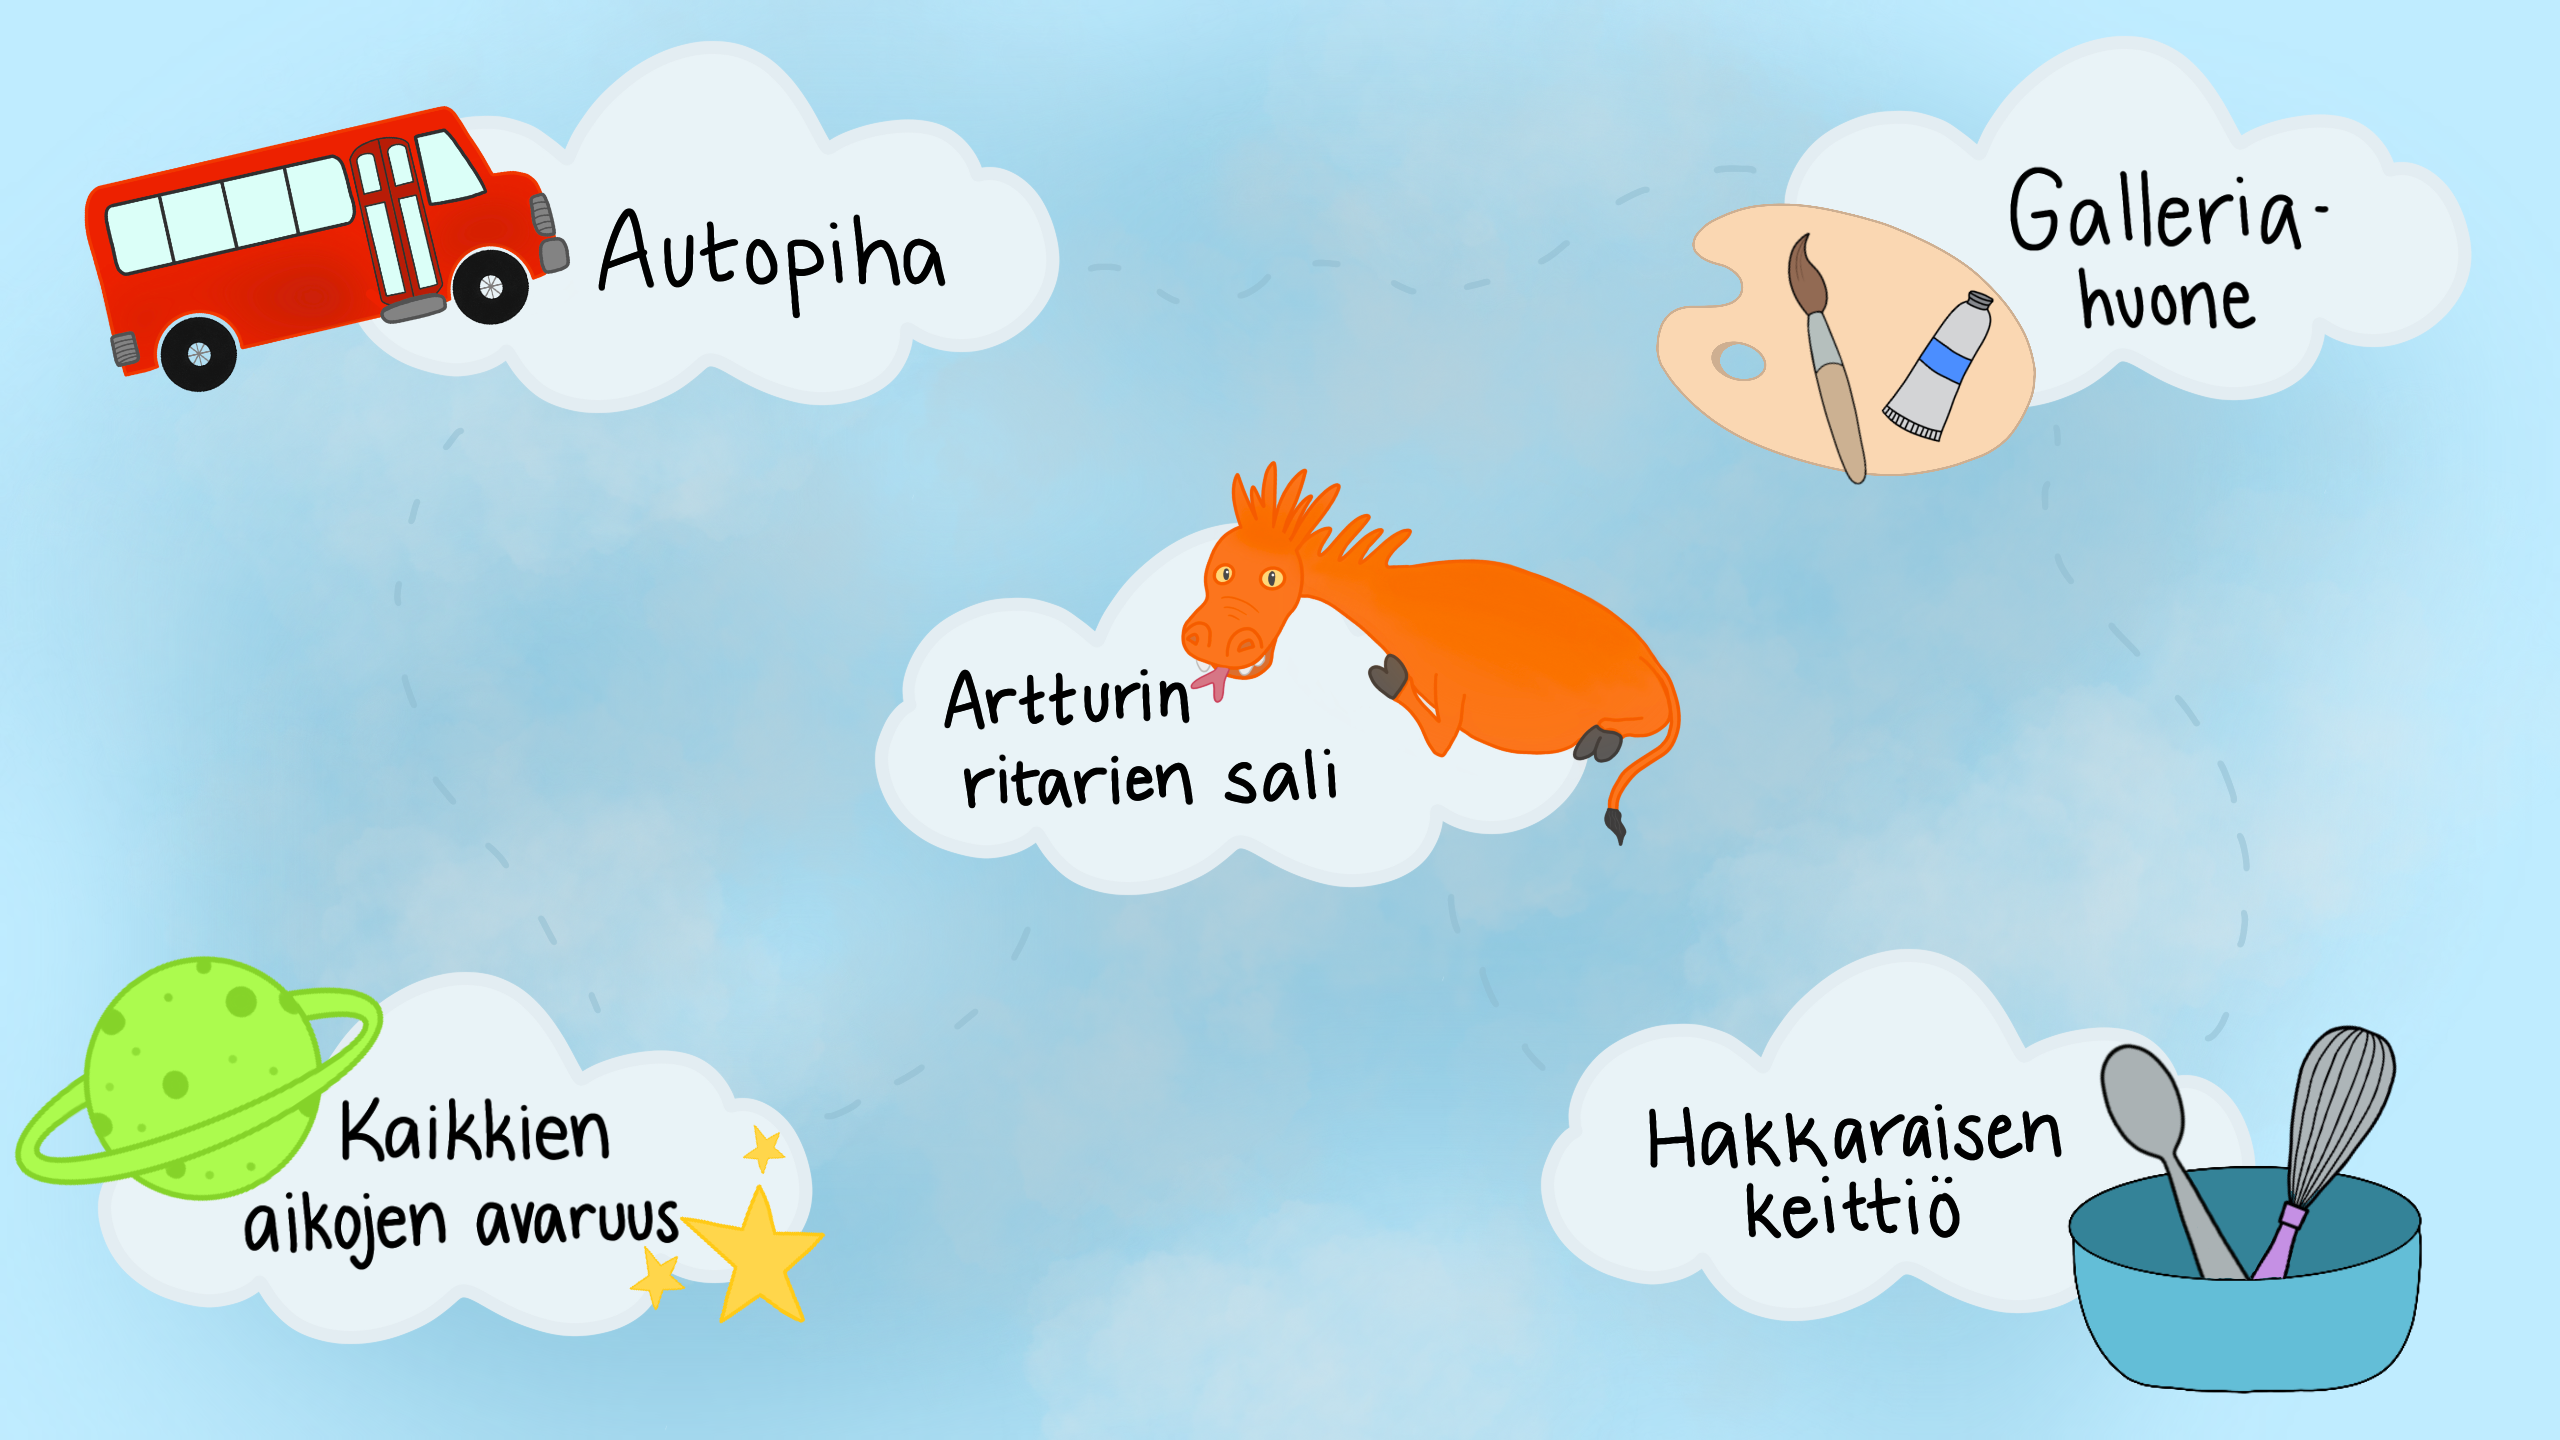 Autopiha
Galleria-
huone
Artturin
ritarien sali
Kaikkien
aikojen avaruus
Hakkaraisen
keittiö